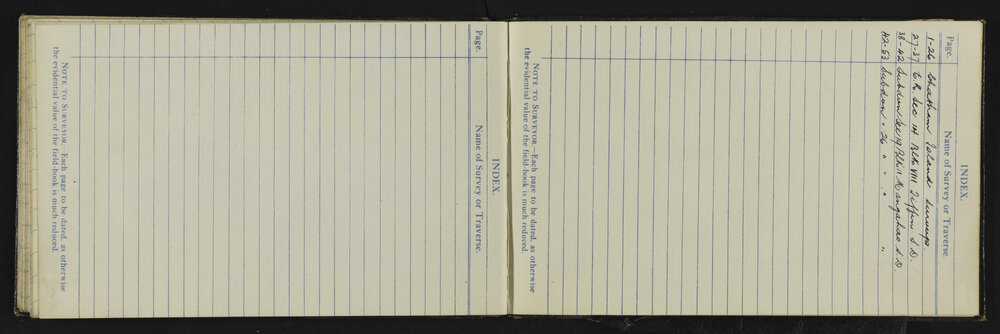 INDEX.
Page. Name of Survey or Traverse.
1-26 Chatham Island Surveys.
27-37 Sec 14 Blk VIII Tiffin S.D.
38-42 Subdivn Sec 19 Blk II Mangahao S.D
42-53 Subdivn " 26 " " "
NOTE TO SURVEYOR.—Each page to be dated, as otherwise
the evidential value of the field-book is much reduced.
INDEX.
Page. Name of Survey or Traverse.
NOTE TO SURVEYOR.—Each page to be dated, as otherwise
the evidential value of the field-book is much reduced.